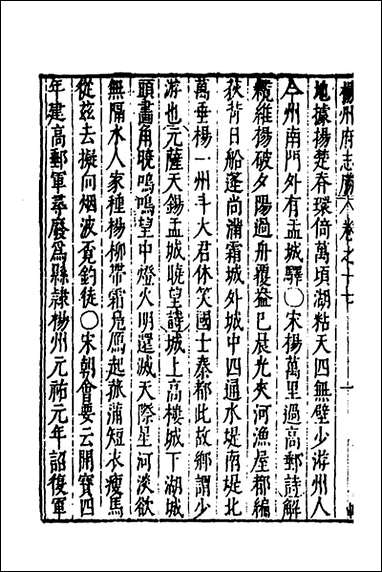 揚州府志勝 卷之十七 一
地據揚楚春環倚萬頃湖粘天四無壁少游州人
今州南門外有孟城驛〇宋楊萬里過高郵詩解
纜維揚破夕陽過舟覆盎已晨光夾河漁屋都編
荻背日船蓬尚滿霜城外城中四通水堤南堤北
萬垂楊一州斗大君休笑國士秦郎此故鄉謂少
游也元薩天錫孟城曉望詩城上高樓城下湖城
頭畫角曉嗚嗚望中燈火明還滅天際星河淡欲
無隔水人家種楊柳帶霜鳧鴈起菰蒲短衣瘦馬
從茲去擬向烟波覓釣徒〇宋朝會要云開寶四
年建高郵軍尋廢爲縣隸楊州元祐元年詔復軍